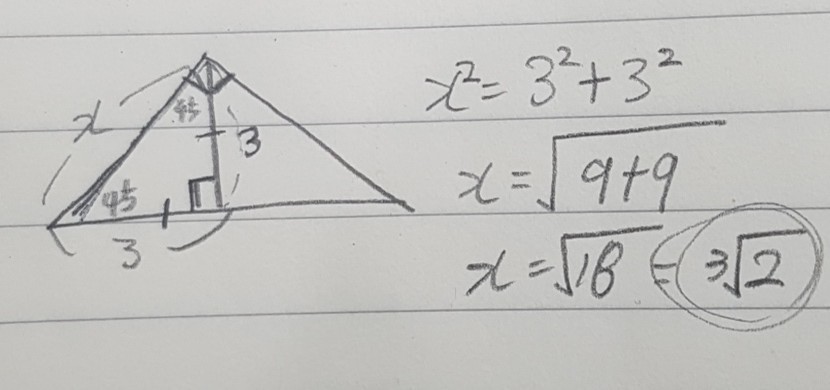 x
45
3
45
3
x² = 3² + 3²
x = √9+9
x = √18 = 3√2